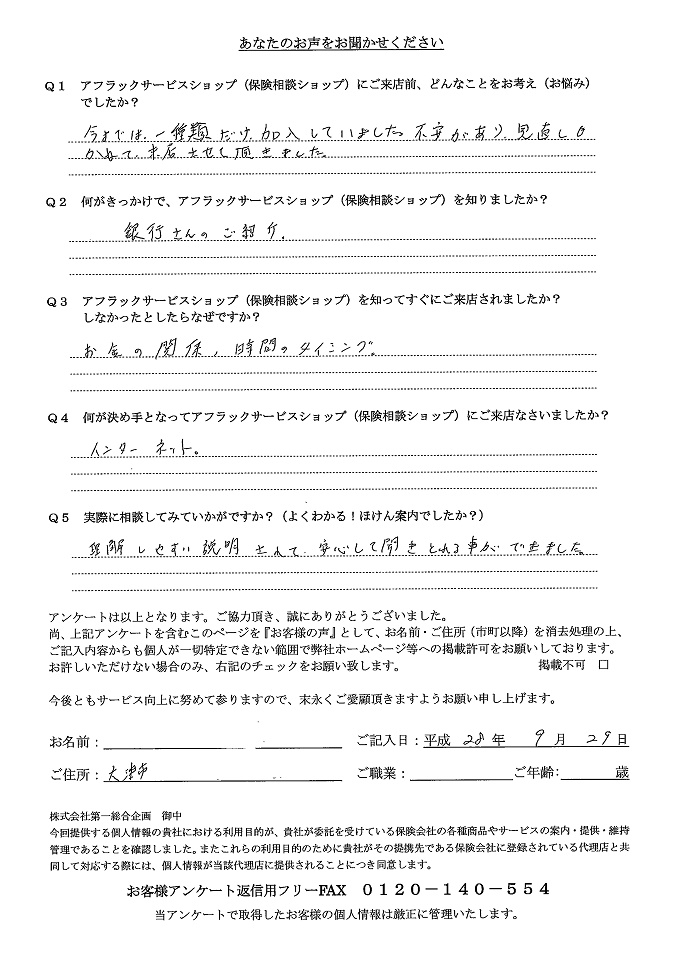 あなたのお声をお聞かせください
Q1 アフラックサービスショップ（保険相談ショップ）にご来店前、どんなことをお考え（お悩み）
でしたか？
今までは、一種類だけ加入していました。不安があり、見直しも
かねて、来店させて頂きました。
Q2 何がきっかけで、アフラックサービスショップ（保険相談ショップ）を知りましたか？
銀行さんのご紹介。
Q3 アフラックサービスショップ（保険相談ショップ）を知ってすぐにご来店されましたか？
しなかったとしたらなぜですか？
お金の関係、時間のタイミング。
Q4 何が決め手となってアフラックサービスショップ（保険相談ショップ）にご来店なさいましたか？
インターネット。
Q5 実際に相談してみていかがですか？（よくわかる！ほけん案内でしたか？）
理解しやすい説明されて、安心して聞きとれる事ができました。
アンケートは以上となります。ご協力頂き、誠にありがとうございました。
尚、上記アンケートを含むこのページを『お客様の声』として、お名前・ご住所（市町以降）を消去処理の上、
ご記入内容からも個人が一切特定できない範囲で弊社ホームページ等への掲載許可をお願いしております。
お許しいただけない場合のみ、右記のチェックをお願い致します。 掲載不可 □
今後ともサービス向上に努めて参りますので、末永くご愛顧頂きますようお願い申し上げます。
お名前： ご記入日：平成 28 年 9 月 29 日
ご住所：大津市 ご職業： ご年齢： 歳
株式会社第一総合企画 御中
今回提供する個人情報の貴社における利用目的が、貴社が委託を受けている保険会社の各種商品やサービスの案内・提供・維持
管理であることを確認しました。またこれらの利用目的のために貴社がその提携先である保険会社に登録されている代理店と共
同して対応する際には、個人情報が当該代理店に提供されることにつき同意します。
お客様アンケート返信用フリーFAX 0120－140－554
当アンケートで取得したお客様の個人情報は厳正に管理いたします。